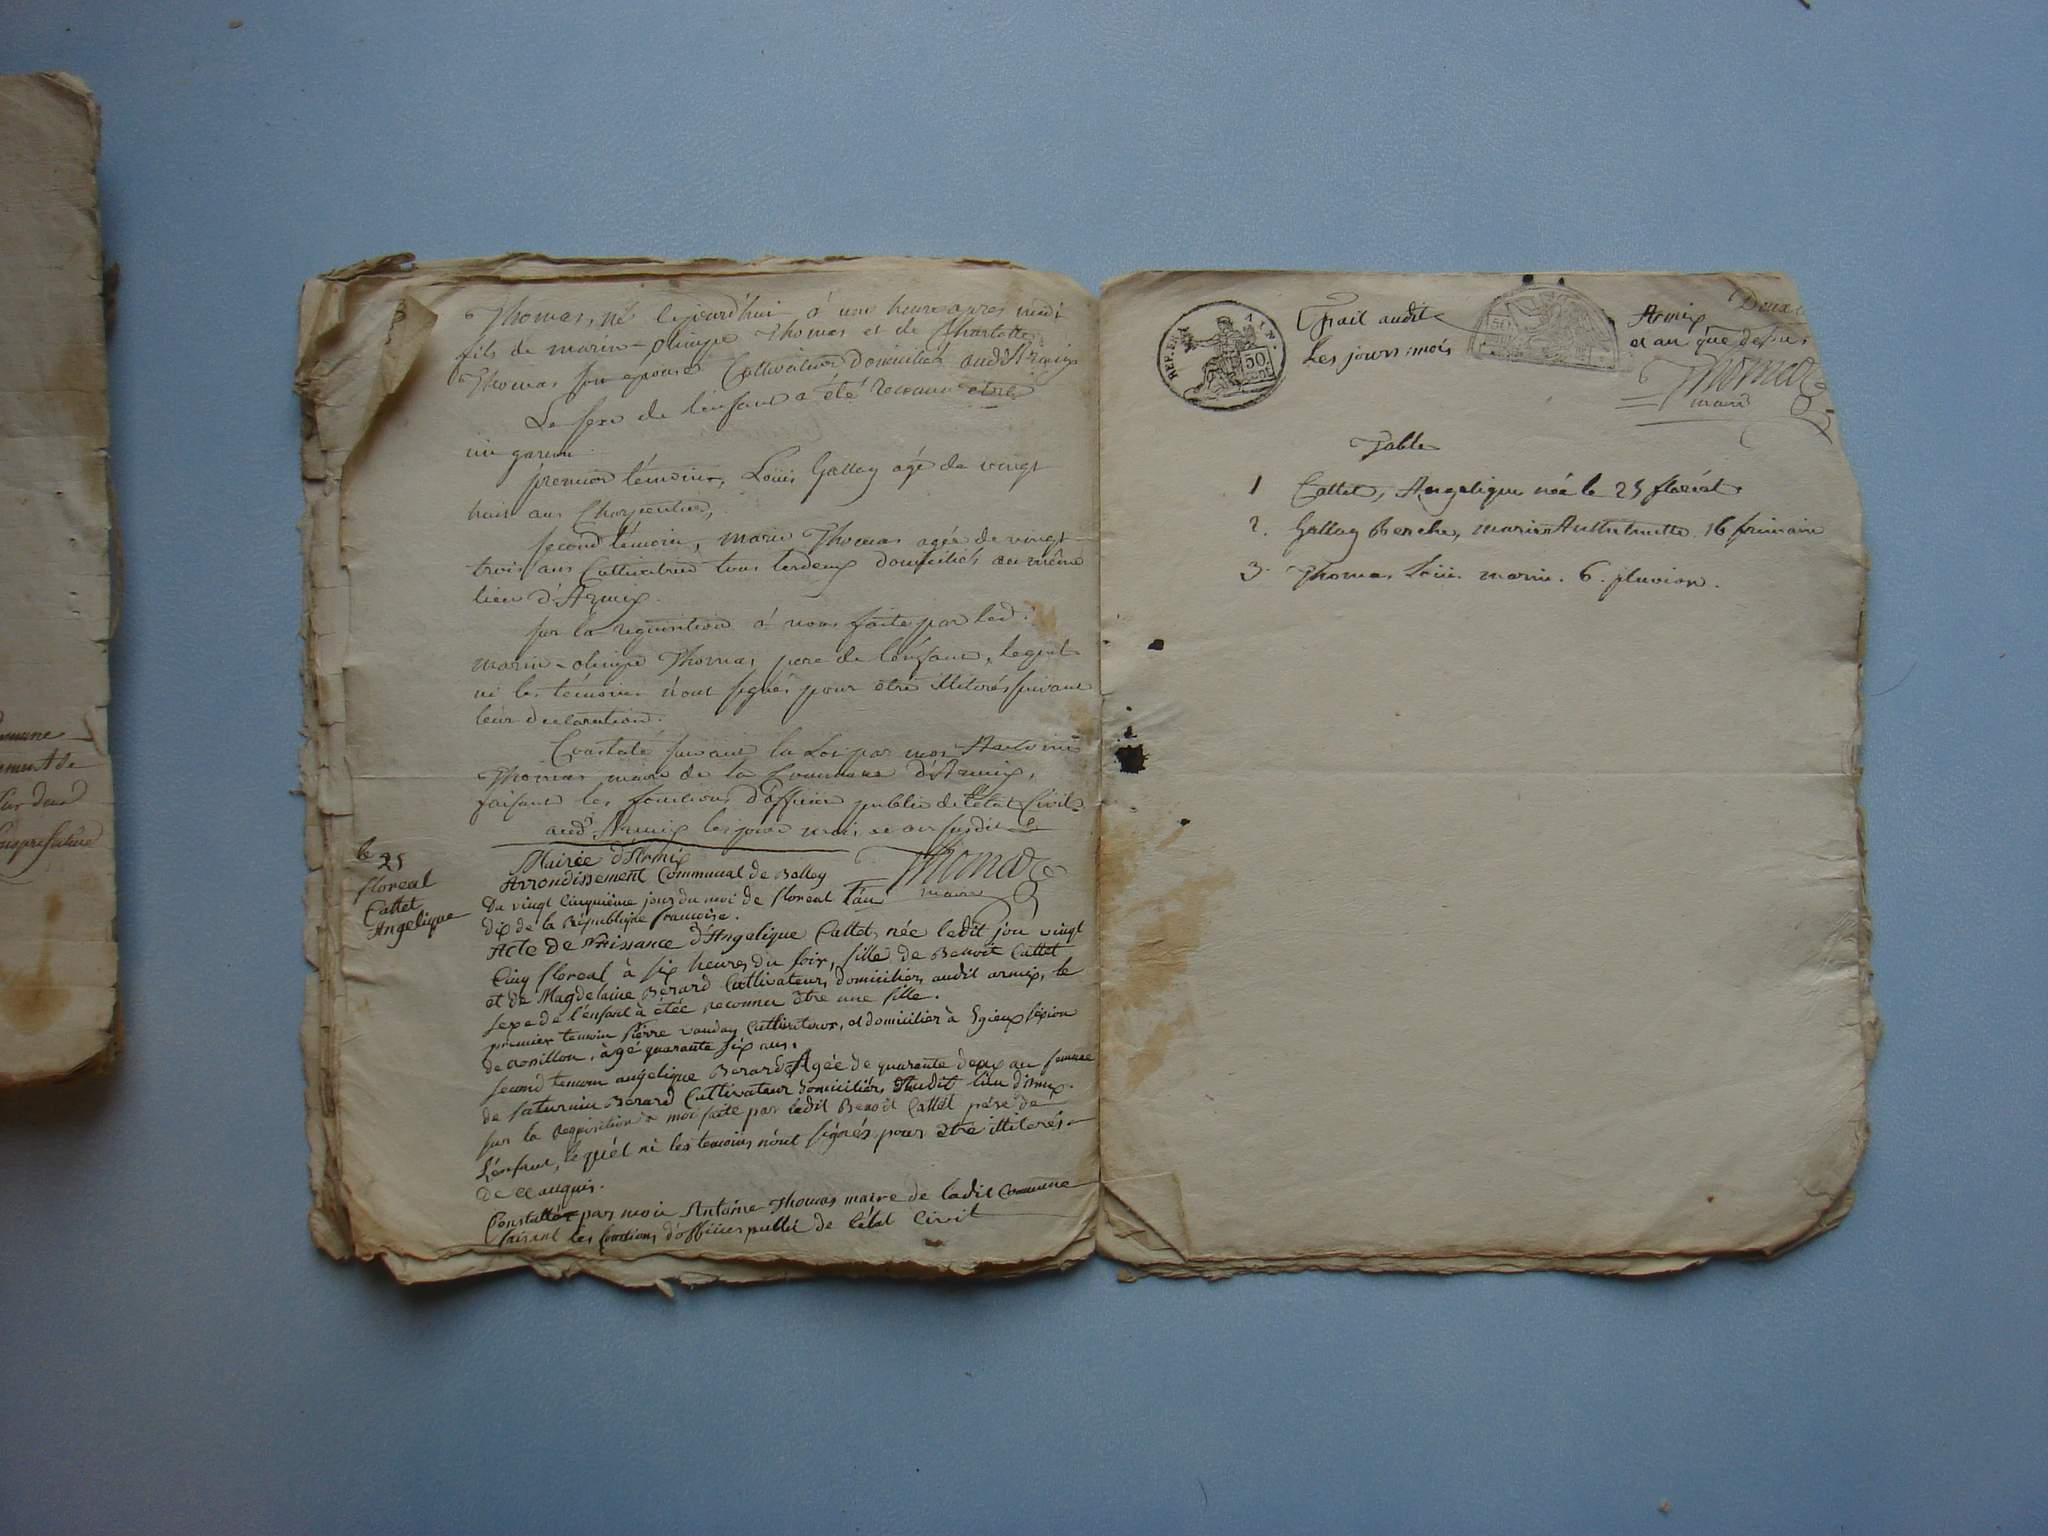 Thomas, né cejourd'hui à une heure apres midi
fils de marin-olimpe Thomas et de Charlotte
Thomas son epouse Cultivateur Domiciliés audit Armix
Le sexe de l'enfant a été reconnu être
un garcon
premier témoin, Louis Gallay agé de vingt
huit ans Charpentier,
second témoin, marin Thomas agée de vingt
trois ans Cultivateur tous les deux domiciliés au même
lieu d'Armix.
sur la requisition à nous faite par led.
marin-olimpe Thomas pere de l'enfant, lequel
ni les témoins n'ont signés pour etre illiterés suivant
leur declaration.
Constaté suivant la Loi par moi Antoine
Thomas maire de la Commune d'Armix,
faisant les fonctions d'officier public de l'état Civil
aud. Armix les jours mois et an susdit
Thomas
maire
le 25
floreal
Cattet
Angelique
Mairée d'Armix
Arrondissement Communal de Belley
Du vingt cinquième jour du moi de floreal l'an
dix de la République francoise.
Acte de Naissance d'Angelique Cattet, née ledit jou vingt
Cinq floreal à six heures du soir, fille de Benoit Cattet
et de Magdelaine Berard Cultivateurs domiciliés audit armix, le
sexe de l'enfant à étée reconnu être une fille.
premier temoin Pierre vauday Cultivateur, et domicilier à
de rosillon, àgé quarante six ans.
second temoin angelique Berard Agée de quarante deux an femme
de saturnin Berard Cultivateur domiciliér audit lieu d'armix.
sur la requisition à moi faite par ledit Benoit Cattet pére de
L'enfant, lequél ni les temoins n'ont signés pour être illiterés
de ce
Constatter par moi Antoine Thomas maire de ladit Commune
faisant les fonctions d'officier public de l'état Civil
REP. FRA. AIN.
50
Fait audit Armix
les jours mois et an que dessus
Thomas
maire
Table
1 Cattet, Angelique née le 25 floréal
2. Gallay marie 16 frimaire
3. Thomas Louis marin. 6. pluviose.